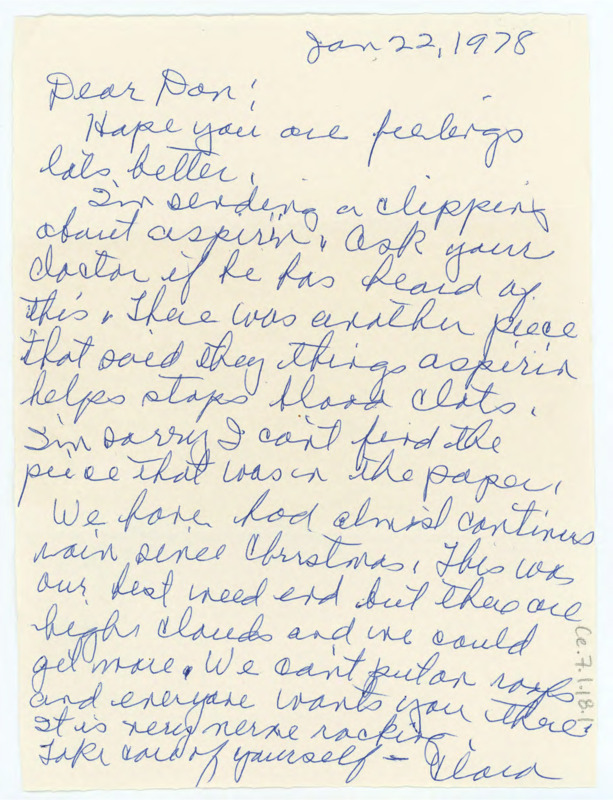 Jan 22, 1978
Dear Don!
Hope you are feelings
lots better.
I'm sending a clipping
about aspirin. Ask your
doctor if he has heard of
this. There was another piece
that said they things aspirin
helps stops blood clots.
I'm sorry I can't find the
peice that was in the paper.
We have had almost continus
rain since Christmas. This was
our best week end but there are
high clouds and we could
get more. We can't put on roofs
and everyone wants you there.
It is very nerve racking.
Take care of yourself - Clara
Ce.7.1.18.1